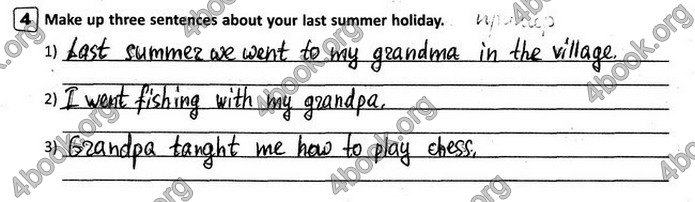 4 Make up three sentences about your last summer holiday.
1) Last summer we went to my grandma in the village.
2) I went fishing with my grandpa.
3) Grandpa tanght me how to play chess.
4book.org